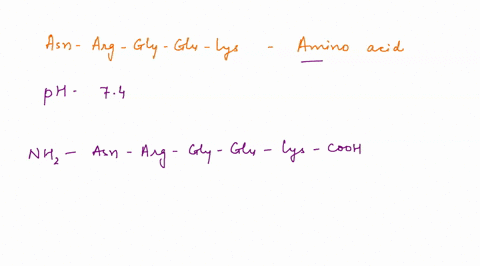 Asn - Arg - Gly - Glu - Lys - Amino acid
pH - 7.4
NH2 - Asn - Arg - Gly - Glu - Lys - COOH